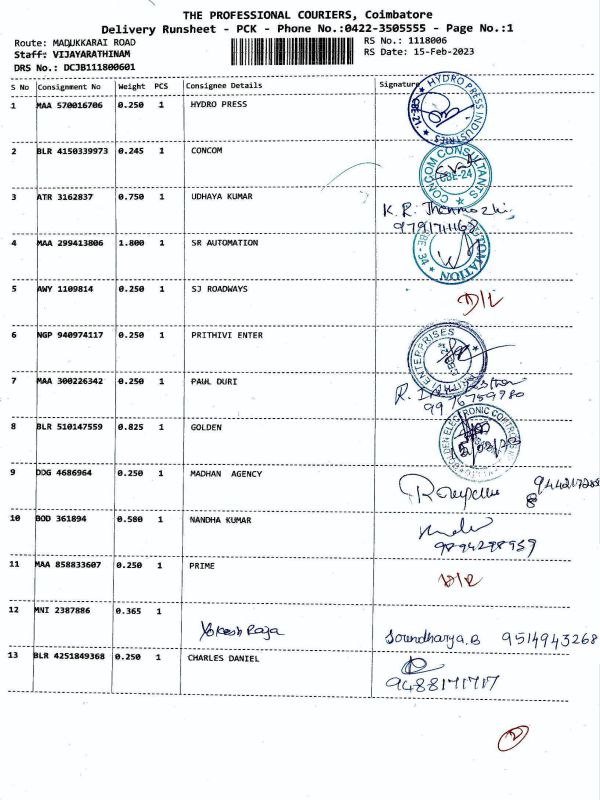 THE PROFESSIONAL COURIERS, Coimbatore
Delivery Runsheet - PCK - Phone No.:0422-3505555 - Page No.:1
Route: MADUKKARAI ROAD RS No.: 1118006
Staff: VIJAYARATHINAM RS Date: 15-Feb-2023
DRS No.: DCJB111800601
S No Consignment No Weight PCS Consignee Details Signature
1 MAA 570016706 0.250 1 HYDRO PRESS
HYDRO PRESS INDUSTRIES
2 BLR 4150339973 0.245 1 CONCOM
CONCOM CONSULTANTS
CBE-24
3 ATR 3162837 0.750 1 UDHAYA KUMAR
K.R. Thenmozhi
9791711168
4 MAA 299413806 1.800 1 SR AUTOMATION
5 AWY 1109814 0.250 1 SJ ROADWAYS
D/L
6 NGP 940974117 0.250 1 PRITHIVI ENTER
PRITHIVI ENTERPRISES
7 MAA 300226342 0.250 1 PAUL DURI
9976759780
8 BLR 510147559 0.825 1 GOLDEN
GOLDEN ELECTRONIC CONTROLS
9 DDG 4686964 0.250 1 MADHAN AGENCY
10 BOD 361894 0.580 1 NANDHA KUMAR
9894298959
11 MAA 858833607 0.250 1 PRIME
D/L
12 MNI 2387886 0.365 1
Yokesh Raja Soundharya.B 9514943268
13 BLR 4251849368 0.250 1 CHARLES DANIEL
9488171717
2